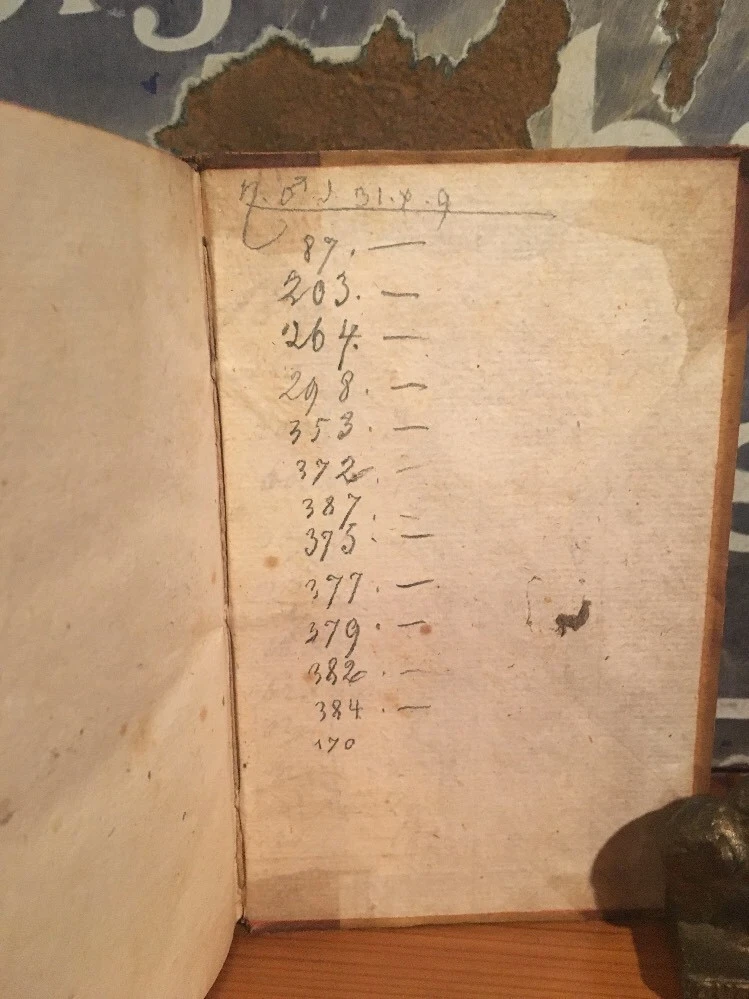 87. —
203. —
264. —
298. —
353. —
372. —
387.
375. —
377. —
379. —
382. —
384. —
170